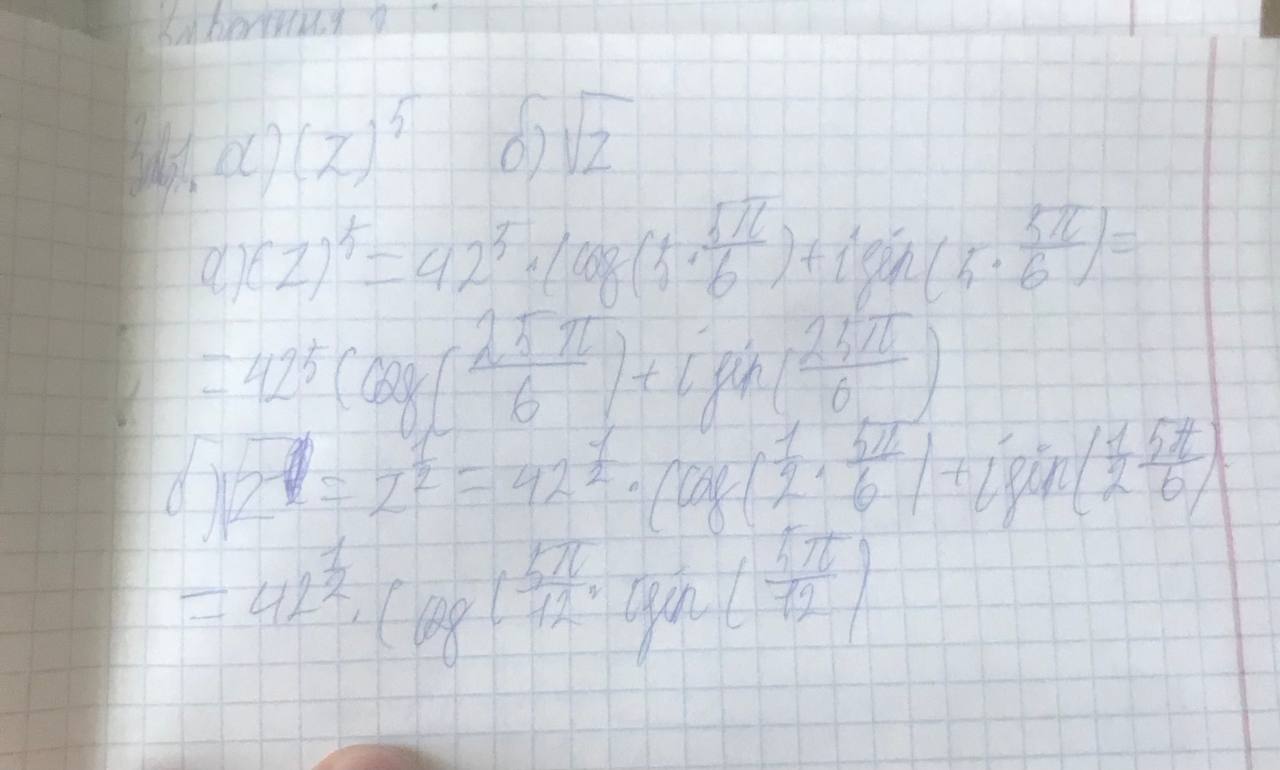 а) (z)^5 б) √z
а) (z)^5 = 42^5 · (cos(5 · 5π/6) + i sin(5 · 5π/6) =
= 42^5 (cos(25π/6) + i sin(25π/6)
б) √z = z^1/2 = 42^1/2 · (cos(1/2 · 5π/6) + i sin(1/2 5π/6)
= 42^1/2 · (cos(5π/12 · i sin(5π/12)